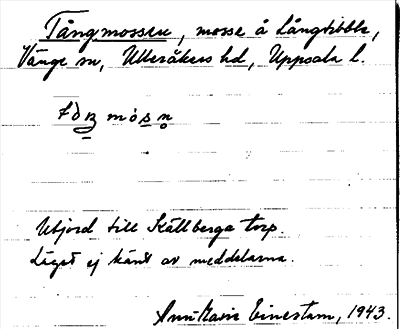 Tångmossen, mosse å Långtibble,
Vänge sn, Ulleråkers hd, Uppsala l.
Utjord till Källberga torp.
Läget ej känt av meddelarna.
Ann-Marie Einerstam, 1943.